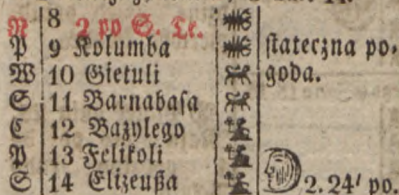 N 8 2 po S. Tr.
P 9 Kolumba stateczna po-
W 10 Gietuli goda.
S 11 Barnabaſa
C 12 Bazylego
P 13 Felikoli
S 14 Elizeuſza 2. 24' po.